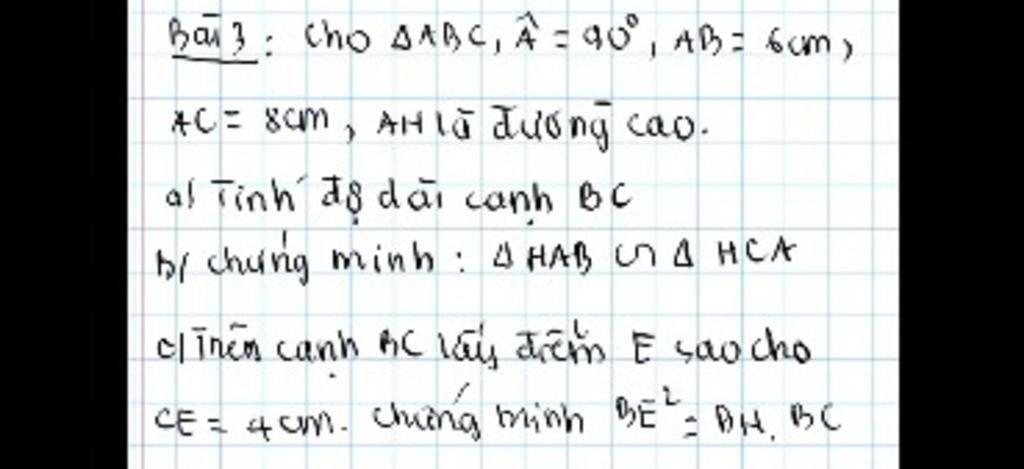 Bài 3 : Cho ΔABC, Â = 90°, AB = 6cm,
AC = 8cm, AH là đường cao.
a/ Tính độ dài cạnh BC
b/ chứng minh : Δ HAB ∽ Δ HCA
c/ Trên cạnh BC lấy điểm E sao cho
CE = 4cm. Chứng minh BE² = BH. BC